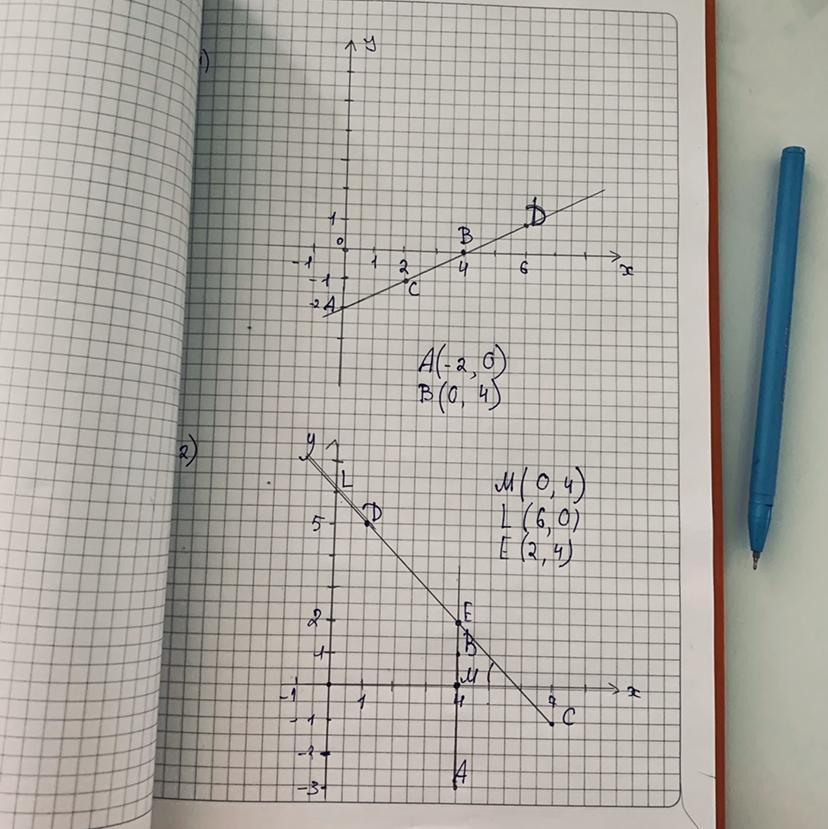 1)
y
1
D
B
0
-1
1
2
4
6
x
-1
C
-2 A
A(-2, 0)
B(0, 4)
2)
y
L
M(0, 4)
D
5
L(6, 0)
E(2, 4)
E
2
B
1
M
-1
1
4
x
C
-1
-2
A
-3